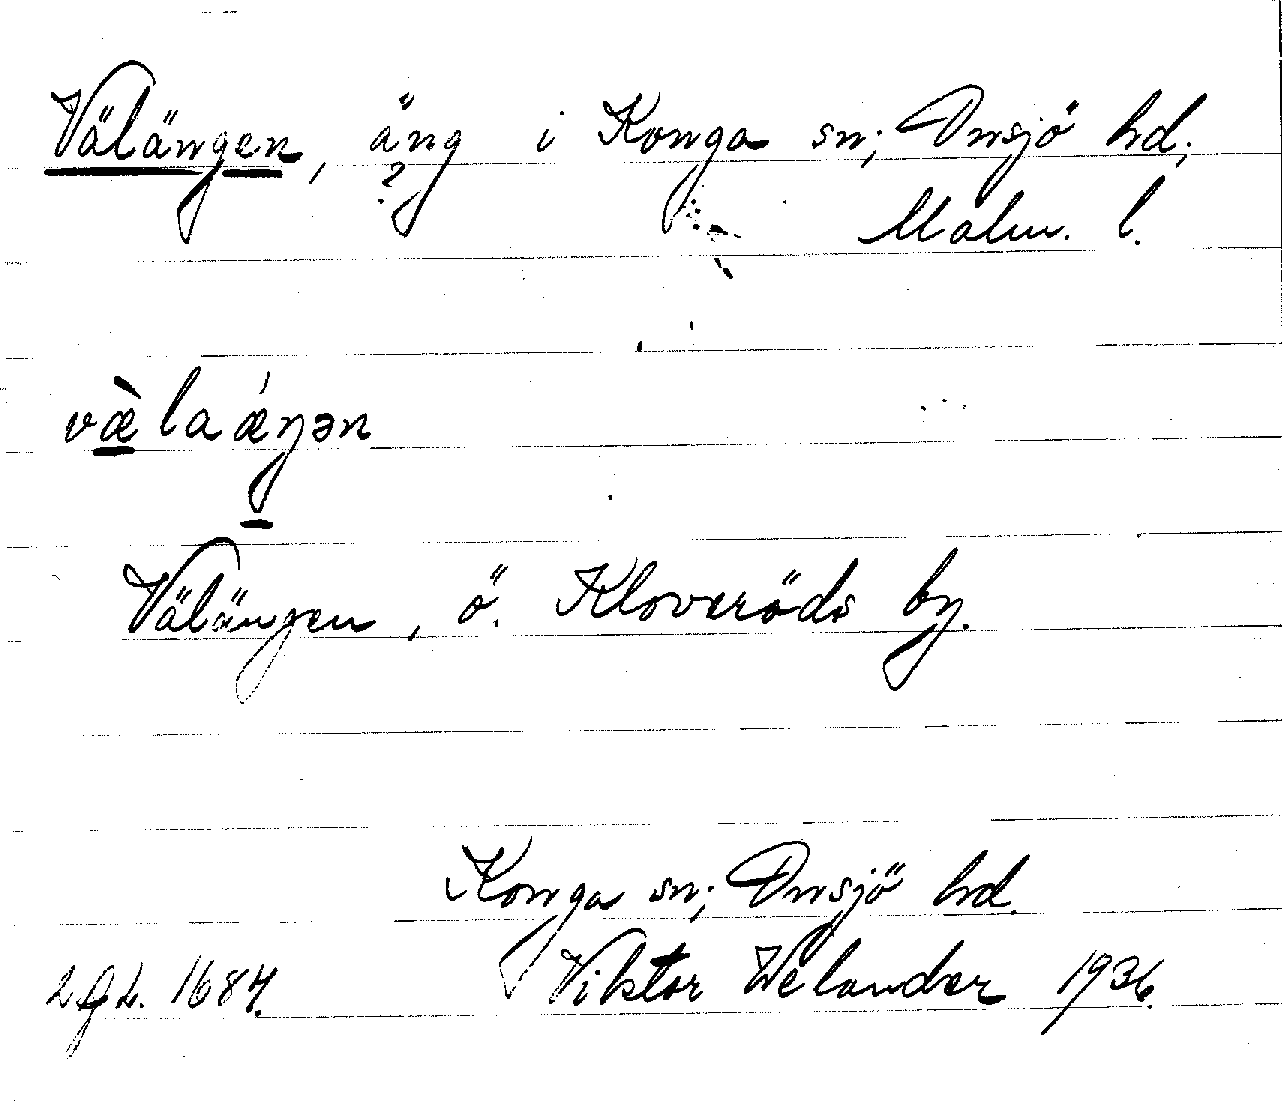 Välängen, äng i Konga sn; Onsjö hd;
?
Malm. l.
væ̀la ǽŋən
Välängen, ö. Kloveröds by.
Konga sn; Onsjö hd.
Viktor Welander 1936.
1684.